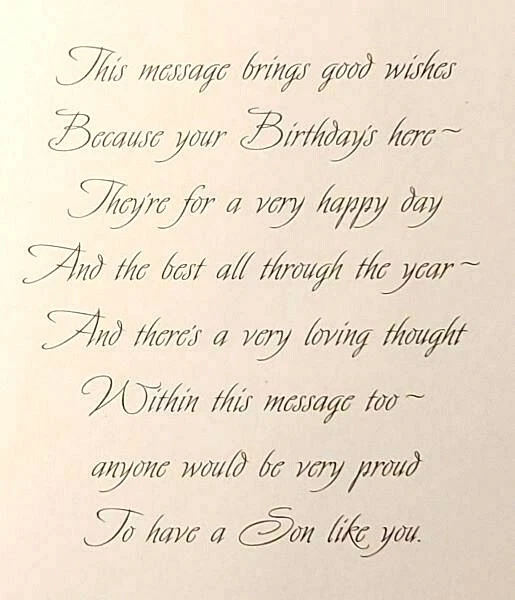 This message brings good wishes
Because your Birthday's here~
They're for a very happy day
And the best all through the year~
And there's a very loving thought
Within this message too~
anyone would be very proud
To have a Son like you.